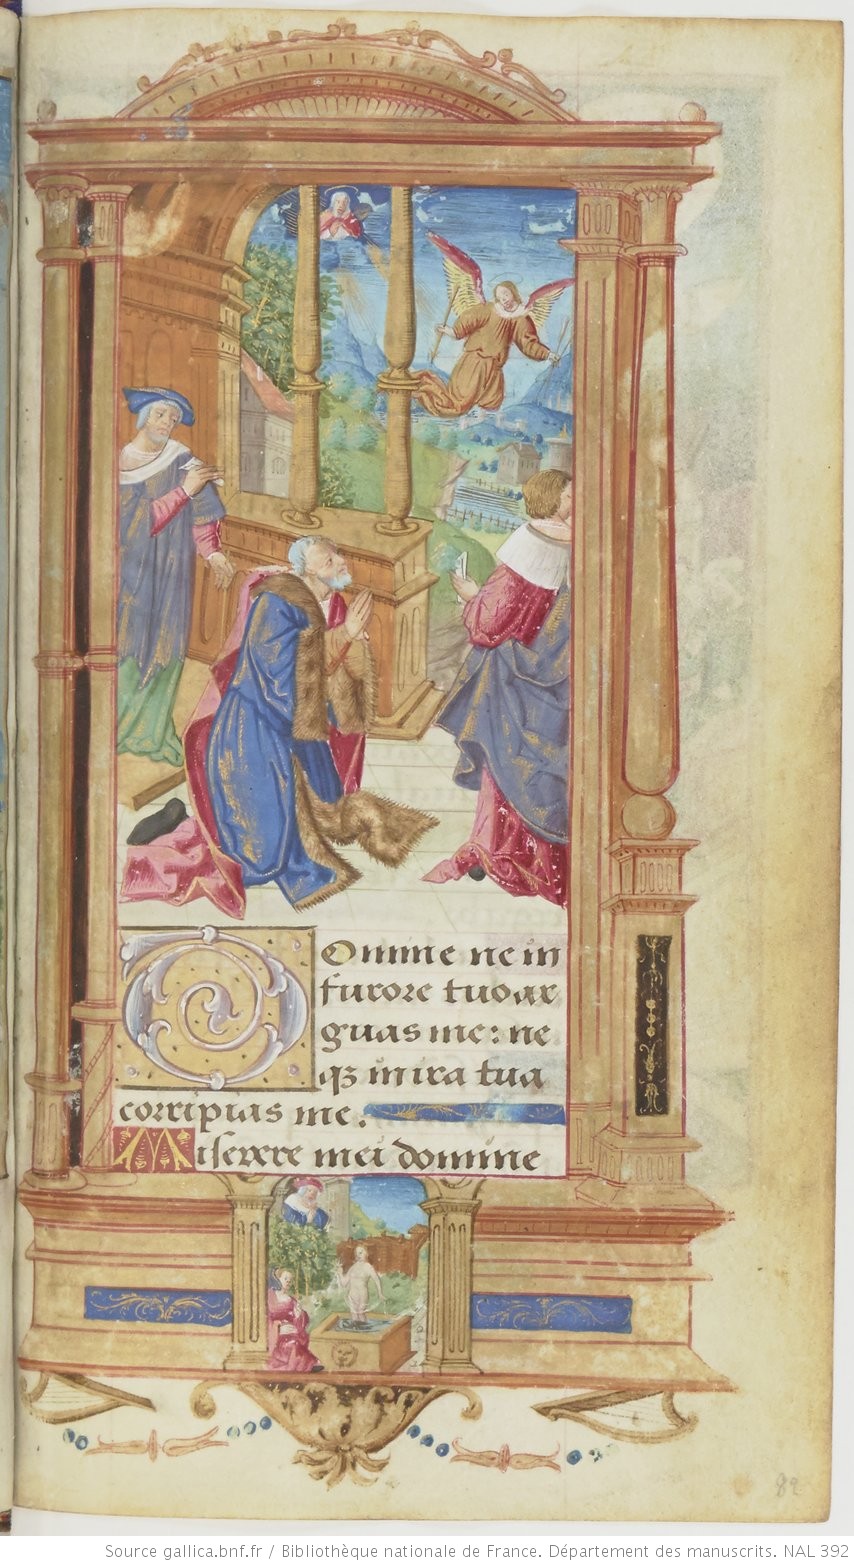 Domine ne in
furore tuo ar
guas me: ne
qꝫ in ira tua
corripias me.
Miserere mei domine
82
Source gallica.bnf.fr / Bibliothèque nationale de France. Département des manuscrits. NAL 392